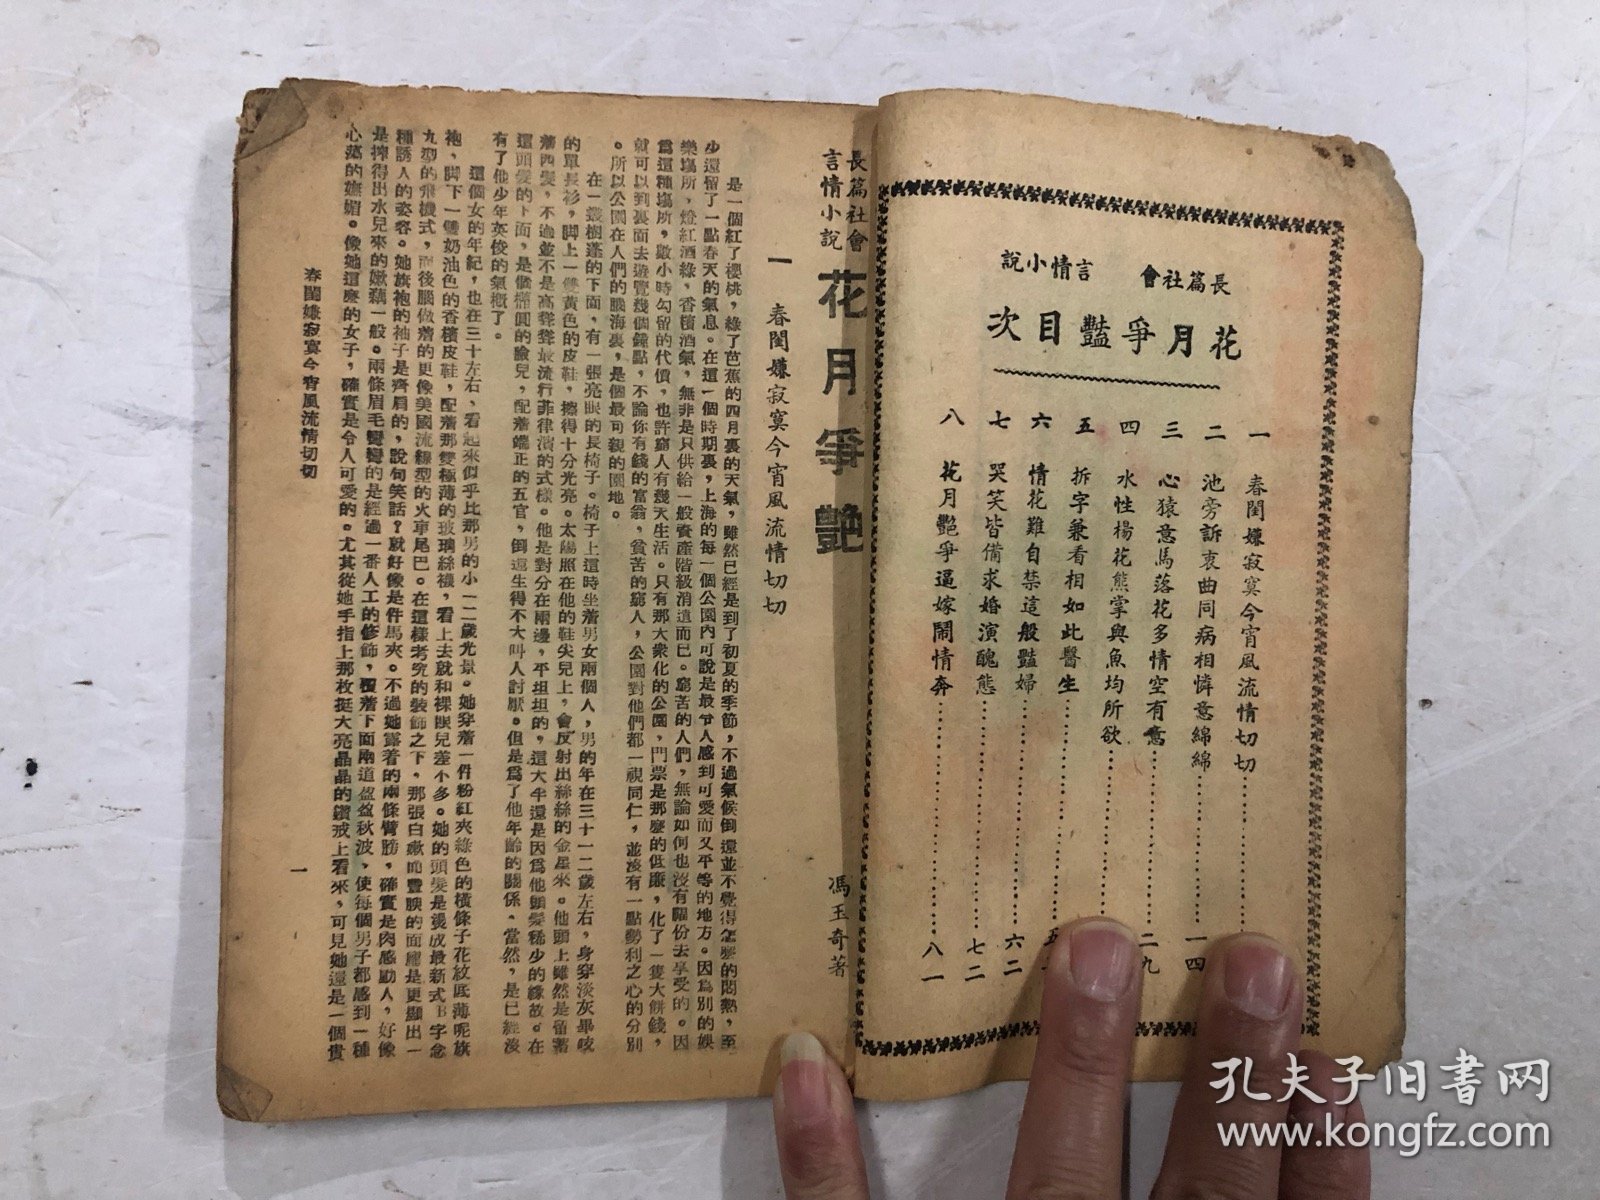 長篇社會　言情小說
花月爭豔目次
一　春閨嫌寂寞今宵風流情切切…………
二　池旁訴衷曲同病相憐意綿綿…………一四
三　心猿意馬落花多情空有意…………二九
四　水性楊花熊掌與魚均所欲…………
五　拆字兼看相如此醫生…………五
六　情花難自禁這般豔婦…………六二
七　哭笑皆備求婚演醜態…………七二
八　花月艷爭逼嫁鬧情奔…………八一
長篇社會
言情小說
花月爭艷
馮玉奇著
一　春閨嫌寂寞今宵風流情切切
是一個紅了櫻桃，綠了芭蕉的四月裏的天氣，雖然已經是到了初夏的季節，不過氣候倒還並不覺得怎麼的悶熱，至
少還留了一點春天的氣息。在這一個時期裏，上海的每一個公園內可說是最令人感到可愛而又平等的地方。因為別的娛
樂場所，燈紅酒綠，香檳酒氣，無非是只供給一般資產階級消遣而已。窮苦的人們，無論如何也沒有閒份去享受的。因
為這種場所，數小時勾留的代價，也許窮人有幾天生活。只有那大衆化的公園，門票是那麼的低廉，化了一隻大餅錢，
就可以到裏面去遊覽幾個鐘點，不論你有錢的富翁，貧苦的窮人，公園對他們都一視同仁，並沒有一點勢利之心的分別
。所以公園在人們的腦海裏，是個最可親的園地。
在一叢樹蓬的下面，有一張亮眼的長椅子。椅子上這時坐着男女兩個人，男的年在三十一二歲左右，身穿淡灰嗶嘰
的單長衫，脚上一雙黃色的皮鞋，擦得十分光亮。太陽照在他的鞋尖兒上，會反射出絲絲的金星來。他頭上雖然是留蓄
着西髮，不過並不是高聳聳最流行菲律濱的式樣。他是對分在兩邊，平坦坦的，這大半還是因爲他頭髮稀少的緣故。在
這頭髮的下面，是個橢圓的臉兒，配着端正的五官，倒還生得不大叫人討厭。但是爲了他年齡的關係，當然，是已經沒
有了他少年英俊的氣概了。
這個女的年紀，也在三十左右，看起來似乎比那男的小一二歲光景。她穿着一件粉紅夾綠色的橫條子花紋底薄呢旗
袍，脚下一雙奶油色的香檳皮鞋，配着那雙極薄的玻璃絲襪，看上去就和裸腿兒差不多。她的頭髮是燙成最新式B字念
九型的飛機式，而後腦做着的更像美國流線型的火車尾巴。在這樣考究的裝飾之下，那張白嫩的豐腴的面龐是更顯出一
種誘人的姿容。她旗袍的袖子是齊肩的，說句笑話？就好像是件馬夾。不過她露着的兩條臂膀，確實是肉感動人，好像
是搾得出水兒來的嫩藕一般。兩條眉毛彎彎的是經過一番人工的修飾，覆着下面兩道盈盈秋波，使每個男子都感到一種
心蕩的嫵媚。像她這麼的女子，確實是令人可愛的。尤其從她手指上那枚挺大亮晶晶的鑽戒上看來，可見她還是一個貴
春閨嫌寂寞今宵風流情切切
一
孔夫子旧书网
www.kongfz.com